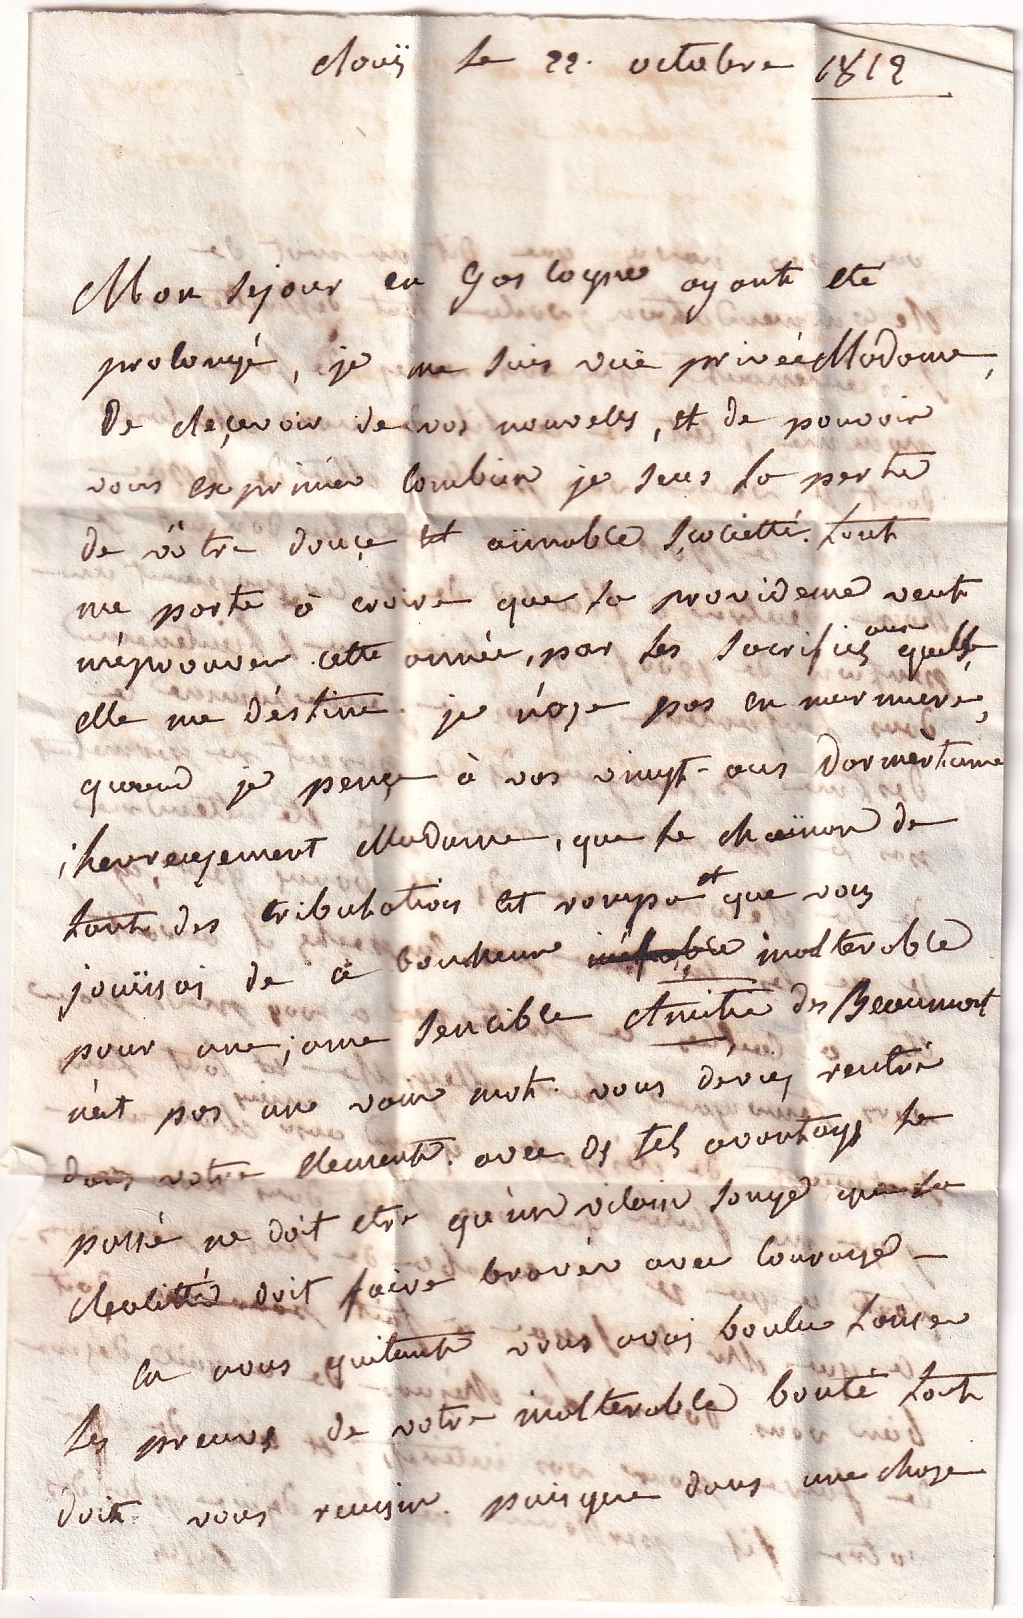 le 22. octobre 1812
Mon sejour en Gascogne ayant eté
prolongé, je me suis vüe privée Madame,
De reçevoir de vos nouvelles, et de pouvoir
vous exprimér combien je sens la perte
de vôtre douçe et aimable Sçocietté. tout
me porte a croire que la providence veut
m'éprouver cette année, par les sacrifices aux quelle
elle me déstine. je n'oze pas en murmuré,
quand je pençe à vos vingt-ans
heureuzement Madame, que le chainon de
tant des tribulations est rompu et que vous
jouissiés de ce bonheur inéfable inaltérable
pour une ame sencible Amitié des Beaumont
n'est pas un vain mot. vous dévés rentré
dans votre element. avec ds tels avantages le
passé ne doit etre qu'un vilain songe que la
realitté doit faire bravér avec Courage —
en nous quitant vous avés voulu laisser
les preuves de votre inalterable bonté tout
doit vous reussir. puisque dans une choze